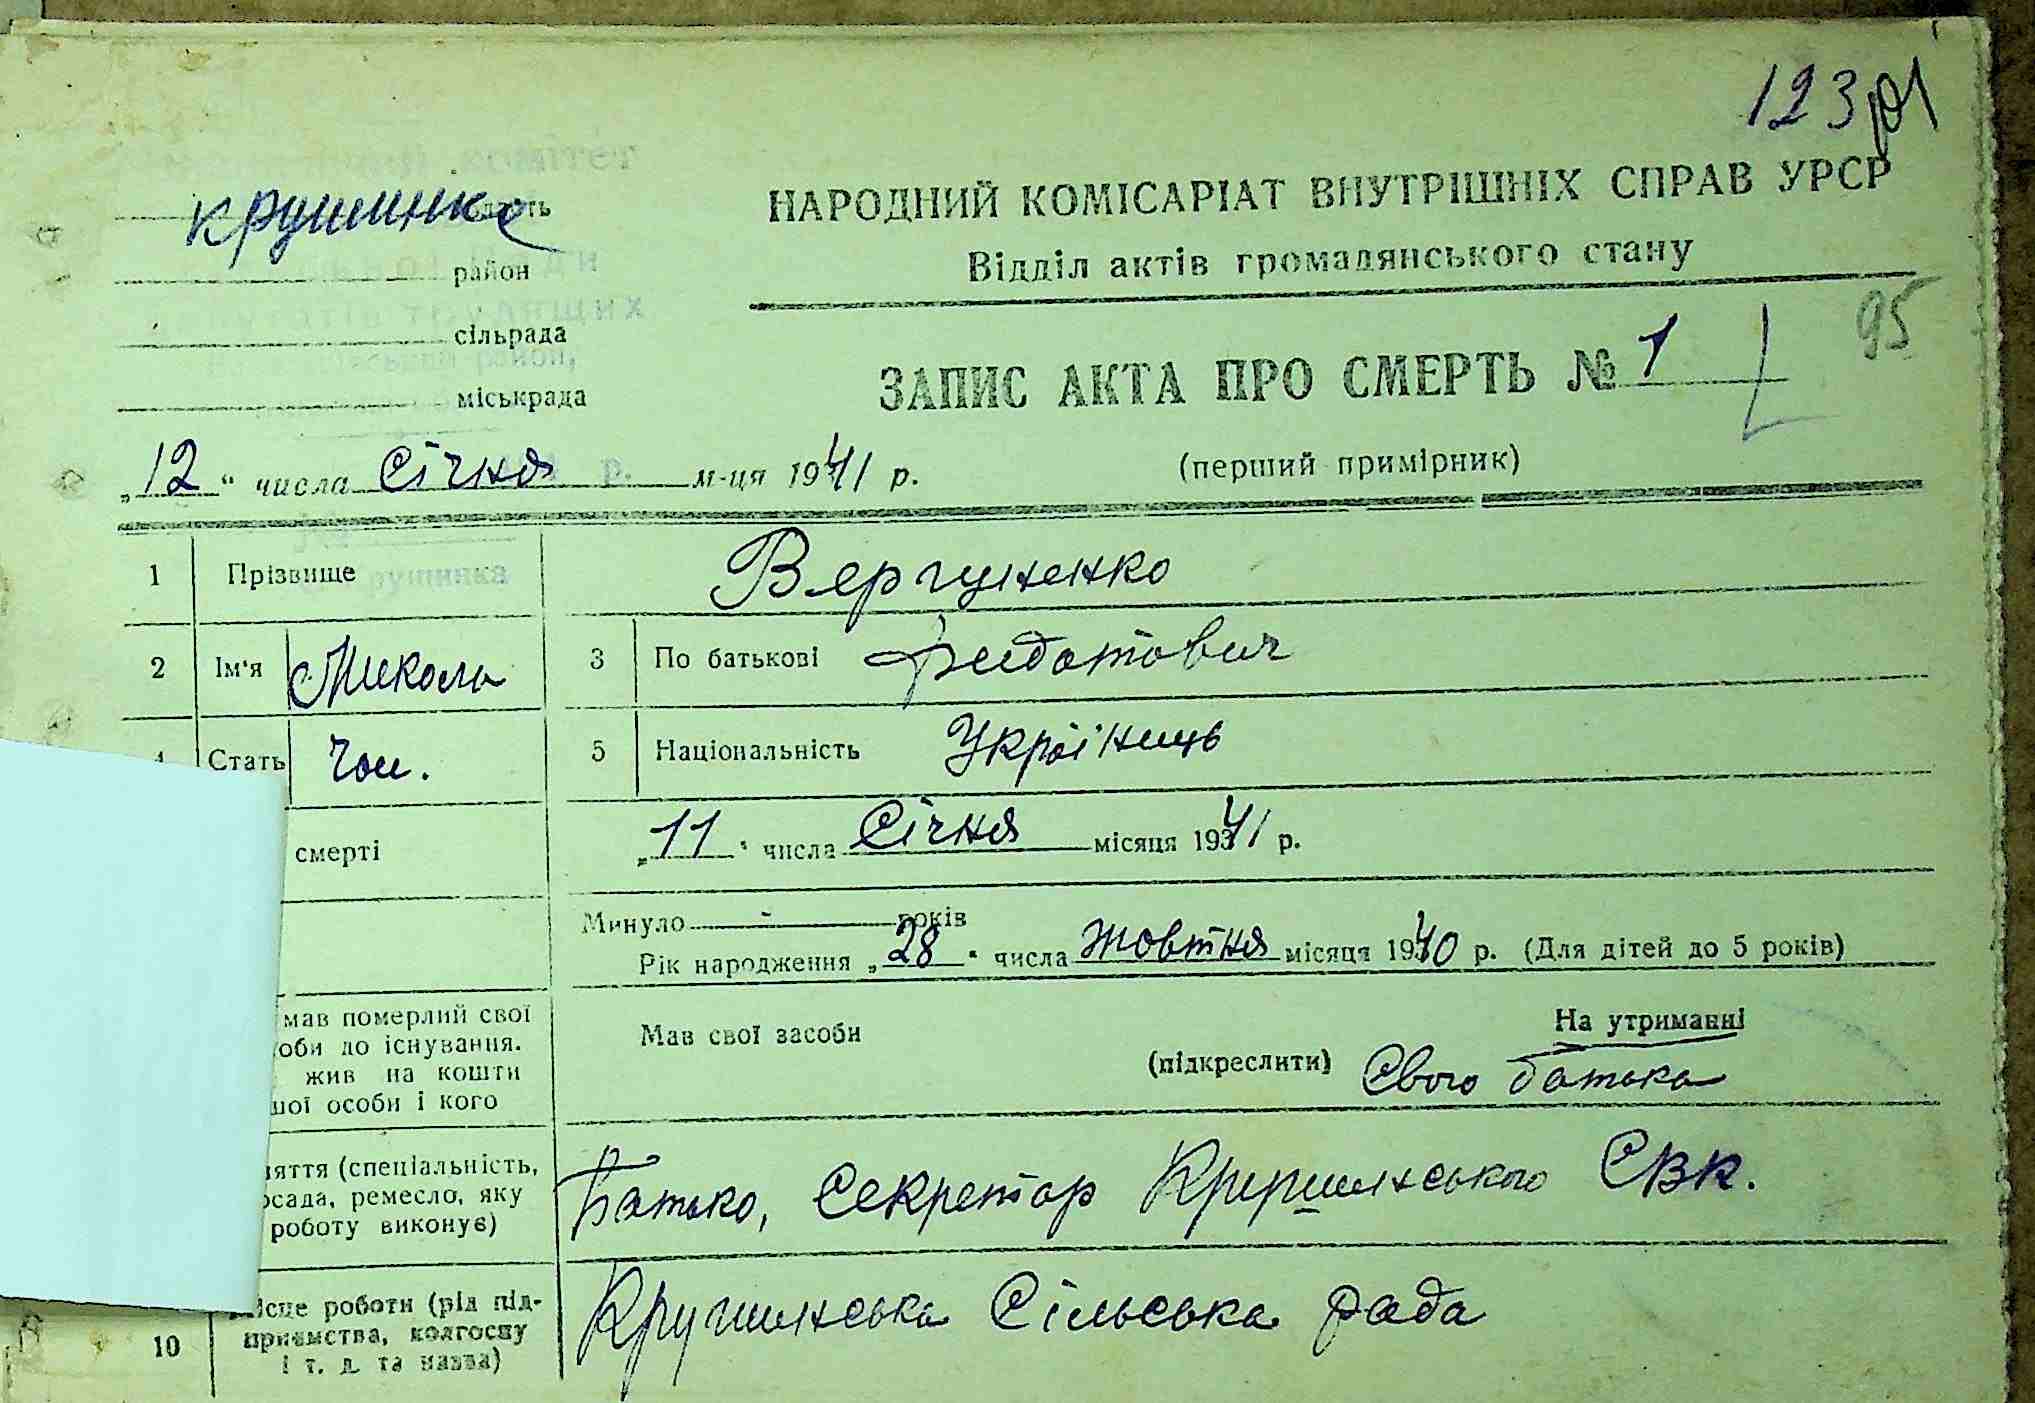 123
НАРОДНИЙ КОМІСАРІАТ ВНУТРІШНІХ СПРАВ УРСР
Відділ актів громадянського стану
Крушинка
район
сільрада
міськрада
95
ЗАПИС АКТА ПРО СМЕРТЬ № 1
(перший примірник)
„12“ числа Січня м-ця 1941 р.
1 Прізвище Вергуненко
2 Ім'я Микола 3 По батькові
Стать Чол. 5 Національність Українець
смерті „11“ числа Січня місяця 1941 р.
Минуло - років
Рік народження „28“ числа Жовтня місяця 1940 р. (Для дітей до 5 років)
мав померлий свої
оби до існування.
жив на кошти
шої особи і кого
Мав свої засоби
(підкреслити)
На утриманні
Свого батька
яття (спеціальність,
осада, ремесло, яку
роботу виконує)
Батько, Секретар СВК.
10 місце роботи (рід під-
приємства, колгоспу
і т. д. та назва)
Крушинська Сільська рада